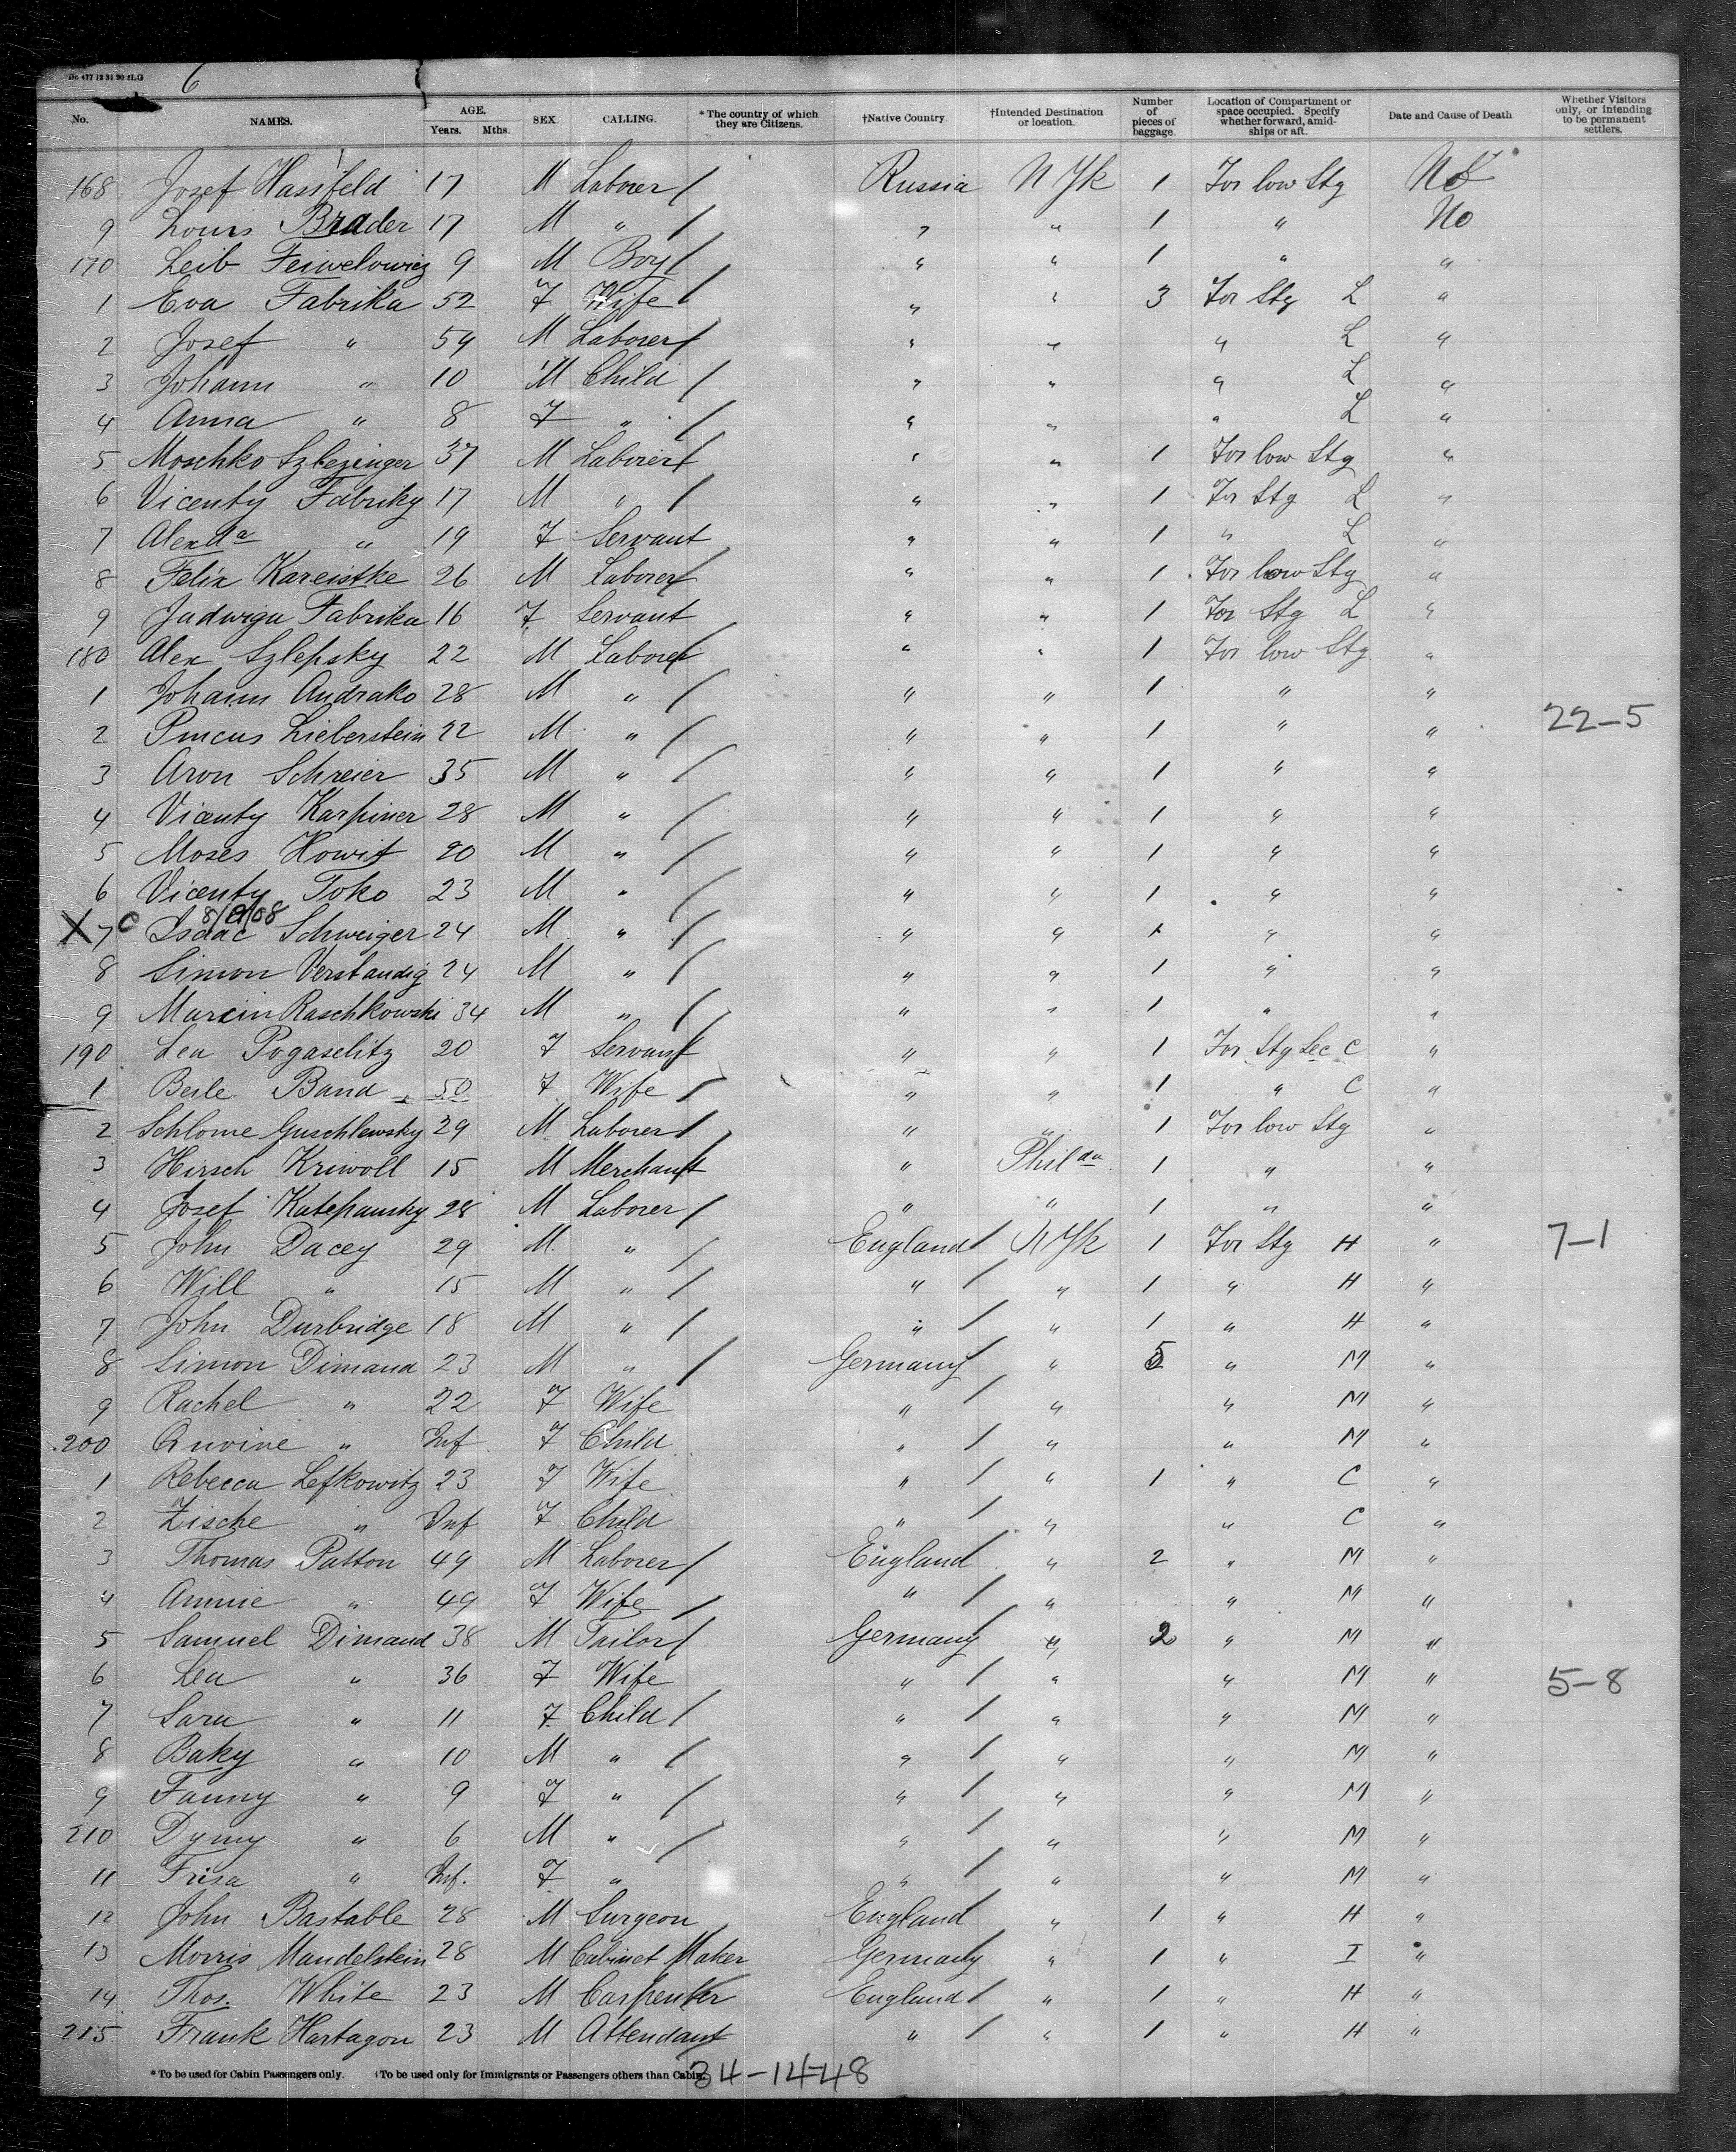 Do 477 12 31 90 2LG 6
No. NAMES. AGE. Years. Mths. SEX. CALLING. * The country of which they are Citizens. †Native Country. †Intended Destination or location. Number of pieces of baggage. Location of Compartment or space occupied. Specify whether forward, amidships or aft. Date and Cause of Death Whether Visitors only, or intending to be permanent settlers.
168 Josef Hassfeld 17 M Laborer / Russia N Yk 1 For low Stg No
9 Louis Brader 17 M " / " " 1 " No
170 Leib Feiwelowicz 9 M Boy / " " 1 " "
1 Eva Fabrika 52 F Wife / " " 3 For Stg L "
2 Josef " 54 M Laborer / " " " L "
3 Johann " 10 M Child / " " " L "
4 Anna " 8 F " / " " " L "
5 Moschko Szlezinger 37 M Laborer / " " 1 For low Stg "
6 Vicenty Fabriky 17 M " / " " 1 For Stg L "
7 Alexda " 19 F Servant " " 1 " L "
8 Felix Kareistke 26 M Laborer / " " 1 For low Stg "
9 Jadwiga Fabrika 16 F Servant " " 1 For Stg L "
180 Alex Szlepsky 22 M Laborer / " " 1 For low Stg "
1 Johann Andrako 28 M " / " " 1 " "
2 Pincus Lieberstein 22 M " / " " 1 " " 22-5
3 Aron Schreier 35 M " / " " 1 " "
4 Vicenty Karpiner 28 M " / " " 1 " "
5 Moses Howit 20 M " / " " 1 " "
6 Vicenty Toko 23 M " / " " 1 " "
X 7 C Isaac Schweiger 24 M " / " " 1 " "
8 Simon Verstandig 24 M " / " " 1 " "
9 Marcin Raschkowski 34 M " / " " 1 " "
190 Lea Pogaselitz 20 F Servant / " " 1 For Stg Sec C "
1 Beile Band 50 F Wife / " " 1 " C "
2 Schlome Guschlewsky 29 M Laborer / " " 1 For low Stg "
3 Hirsch Kriwoll 15 M Merchant / " Philda 1 " "
4 Josef Katepansky 28 M Laborer / " " 1 " "
5 John Dacey 29 M " / England / N Yk 1 For Stg H " 7-1
6 Will " 15 M " / " / " 1 " H "
7 John Durbridge 18 M " / " / " 1 " H "
8 Simon Dimand 23 M " / Germany / " 5 " M "
9 Rachel " 22 F Wife " / " " M "
200 " Inf F Child " / " " M "
1 Rebecca Lefkowitz 23 F Wife " / " 1 " C "
2 Zische " Inf F Child " / " " C "
3 Thomas Patton 49 M Laborer / England / " 2 " M "
4 Annie " 49 F Wife / " / " " M "
5 Samuel Dimand 38 M Tailor / Germany / " 2 " M "
6 Lea " 36 F Wife " / " " M " 5-8
7 Sara " 11 F Child / " / " " M "
8 Baky " 10 M " / " / " " M "
9 Fanny " 9 F " / " / " " M "
210 Dymy " 6 M " / " / " " M "
11 Frisa " Inf. F " " / " " M "
12 John Bastable 28 M Surgeon England / " 1 " H "
13 Morris Mandelstein 28 M Cabinet Maker Germany / " 1 " I "
14 Thos. White 23 M Carpenter England / " 1 " H "
215 Frank Hartagon 23 M Attendant " / " 1 " H "
* To be used for Cabin Passengers only. †To be used only for Immigrants or Passengers others than Cabin. 34-14-48